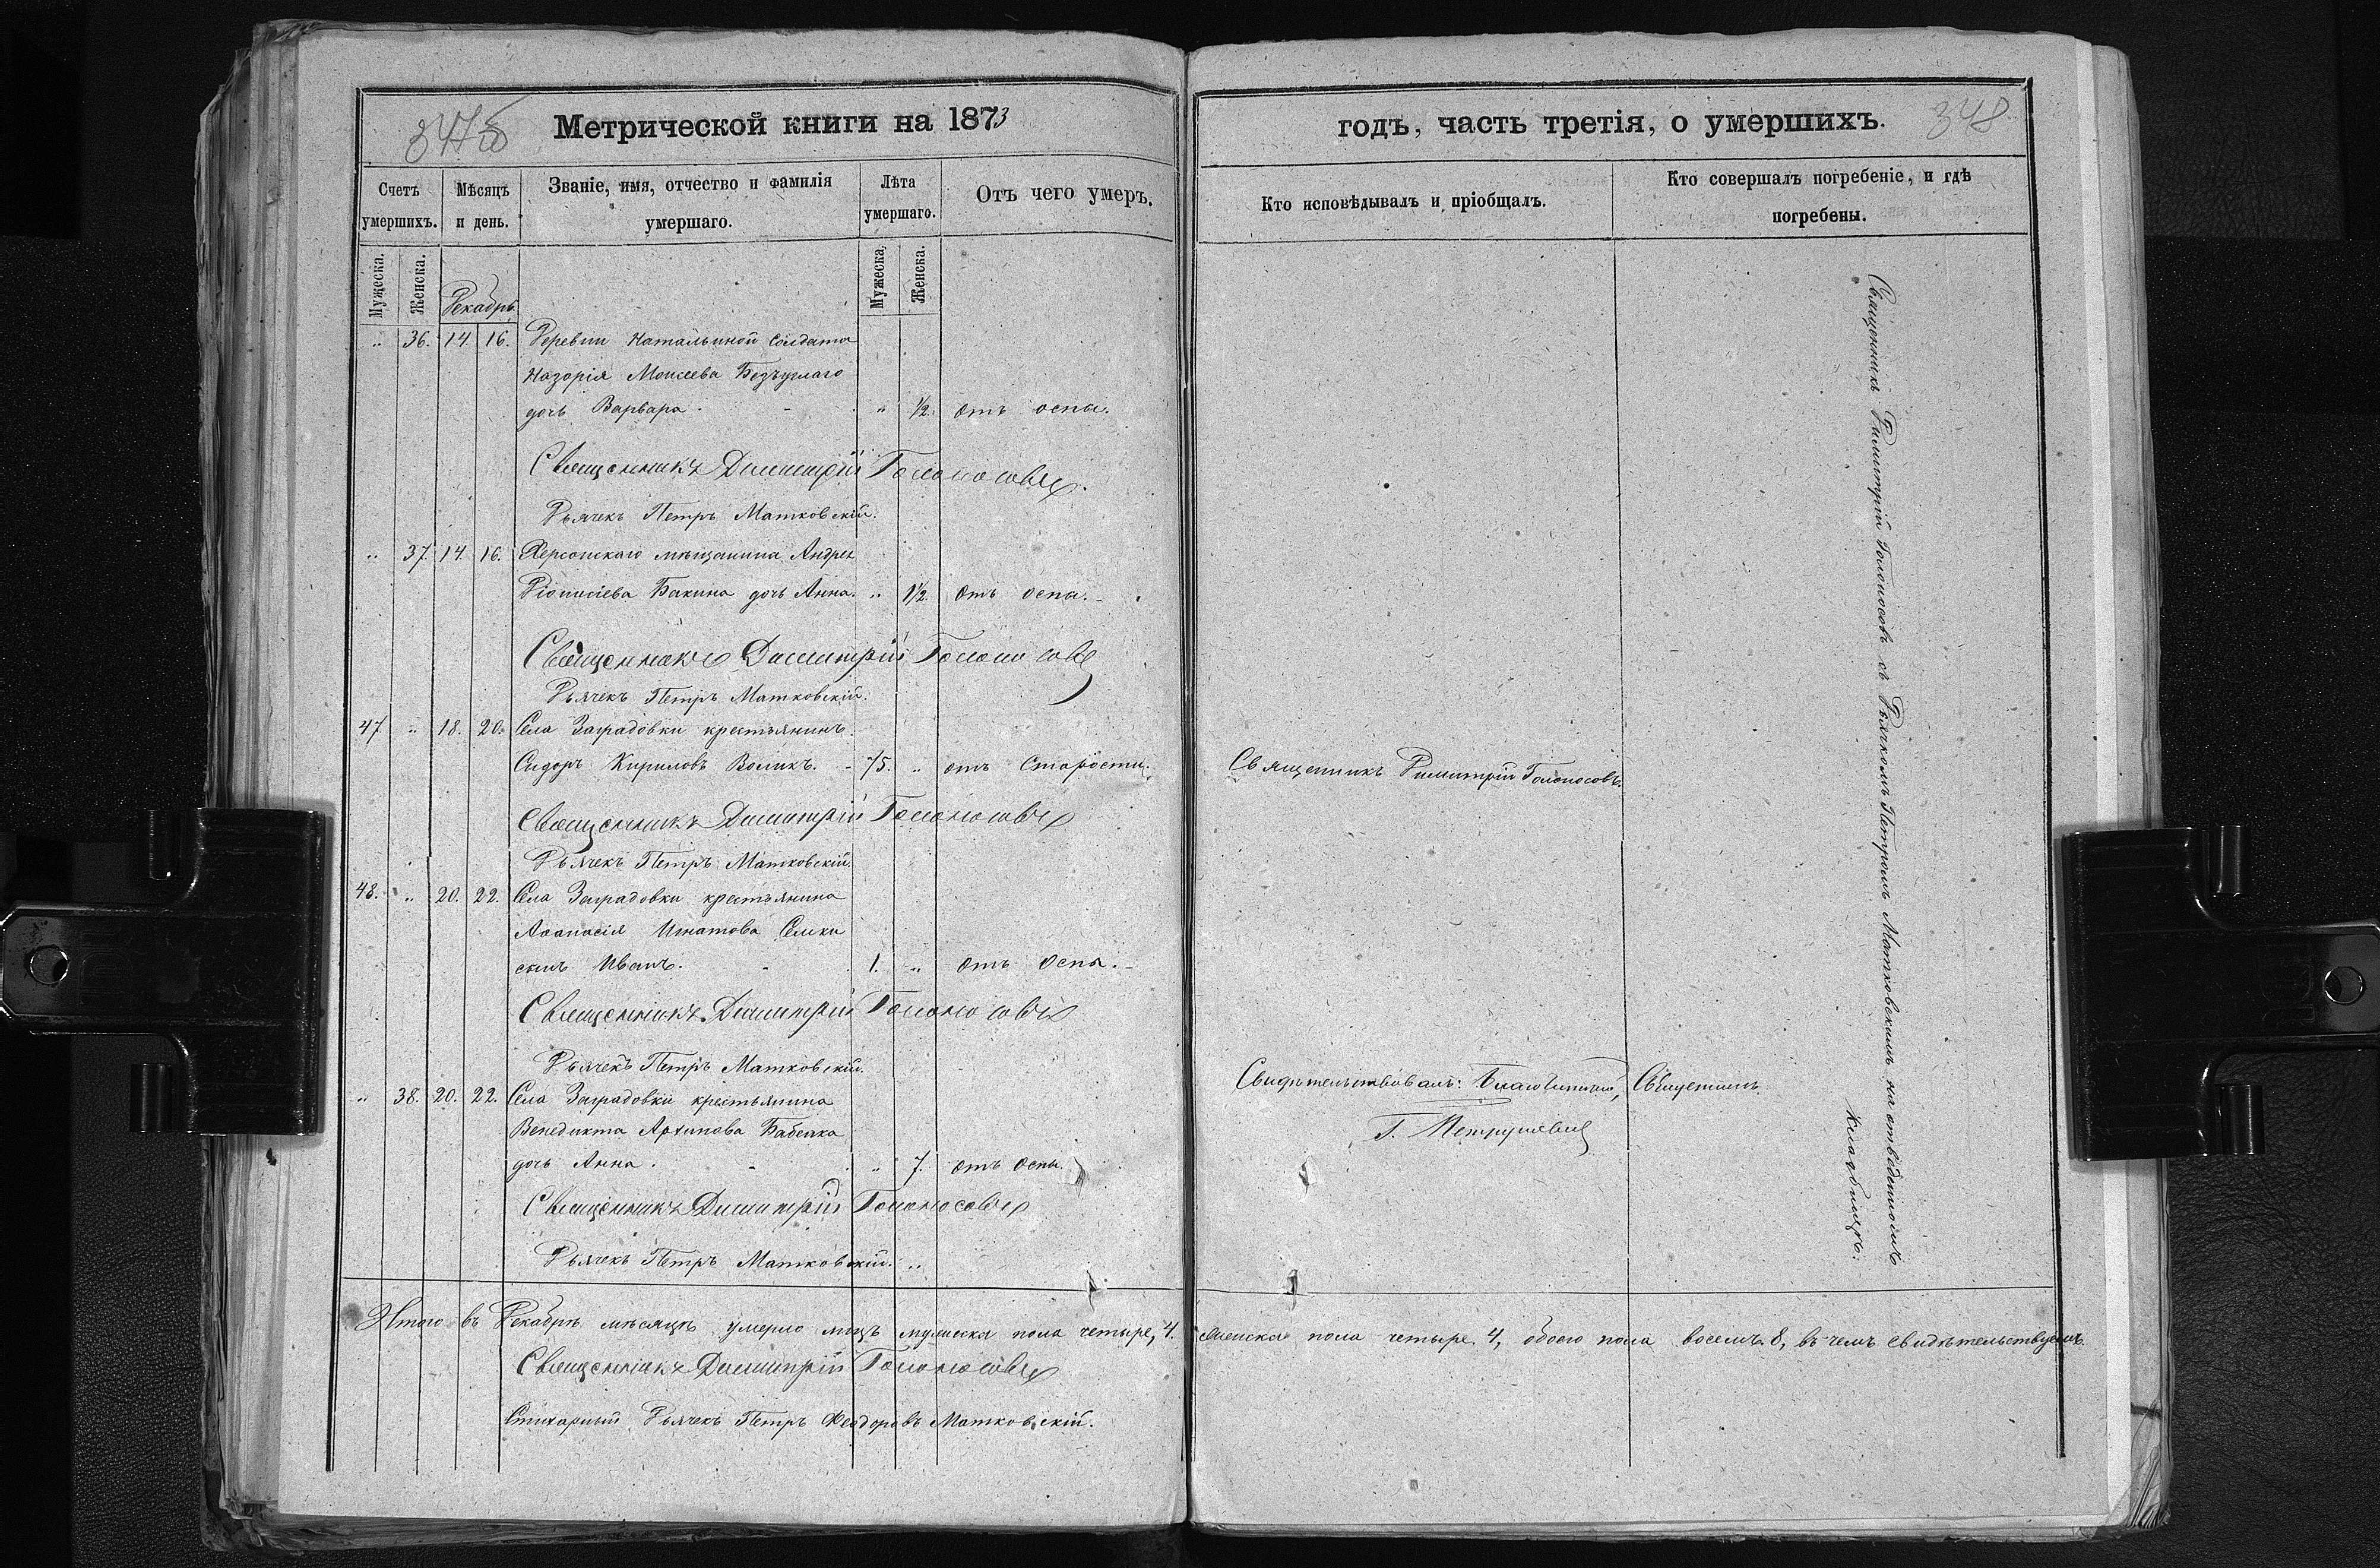 347об
Метрической книги на 1873
Счетъ умершихъ.
Мѣсяцъ и день.
Званіе, имя, отчество и фамилія умершаго.
Лѣта умершаго.
Отъ чего умеръ.
Мужеска.
Женска.
Декабрь.
Мужеска.
Женска.
„ 36. 14. 16. Деревни Натальиной солдата
Назорія Моисеева Безъуглаго
дочь Варвара. - „ ½. отъ оспы.
Священникъ Димитрій Голоносовъ.
Дьячекъ Петръ Матковскій.
„ 37. 14. 16. Херсонскаго мѣщанина Андрея
Діонисіева Бакина дочь Анна. „ 1½. отъ оспы.
Священникъ Димитрій Голоносовъ
Дьячекъ Петръ Матковскій.
47 „ 18. 20. Села Заградовки крестьянинъ
Сидоръ Кириловъ Воликъ. - 75. „ отъ старости.
Священникъ Димитрій Голоносовъ
Дьячекъ Петръ Матковскій.
48. „ 20. 22. Села Заградовки крестьянина
Аѳанасія Игнатова
сынъ Иванъ. 1. „ отъ оспы.
Священникъ Димитрій Голоносовъ
Дьячекъ Петръ Матковскій.
„ 38. 20. 22. Села Заградовки крестьянина
Венедикта Архипова Бабенка
дочь Анна. „ 7. отъ оспы.
Священникъ Димитрій Голоносовъ
Дьячекъ Петръ Матковскій. „
Итого въ Декабрѣ мѣсяцѣ умерло лицъ мужеска пола четыре, 4.
Священникъ Димитрій Голоносовъ
Стихарный Дьячекъ Петръ Феодоровъ Матковскій.
годъ, часть третія, о умершихъ.
348.
Кто исповѣдывалъ и пріобщалъ.
Кто совершалъ погребеніе, и гдѣ погребены.
Священникъ Димитрій Голоносовъ.
Священникъ Димитрій Голоносовъ съ Дьячкомъ Петромъ Матковскимъ на отведенномъ
кладбищѣ.
Свидѣтельствовалъ: Благочинный, Священникъ
Г.
женска пола четыре. 4, обоего пола восемь. 8, въ чемъ свидѣтельствуемъ.